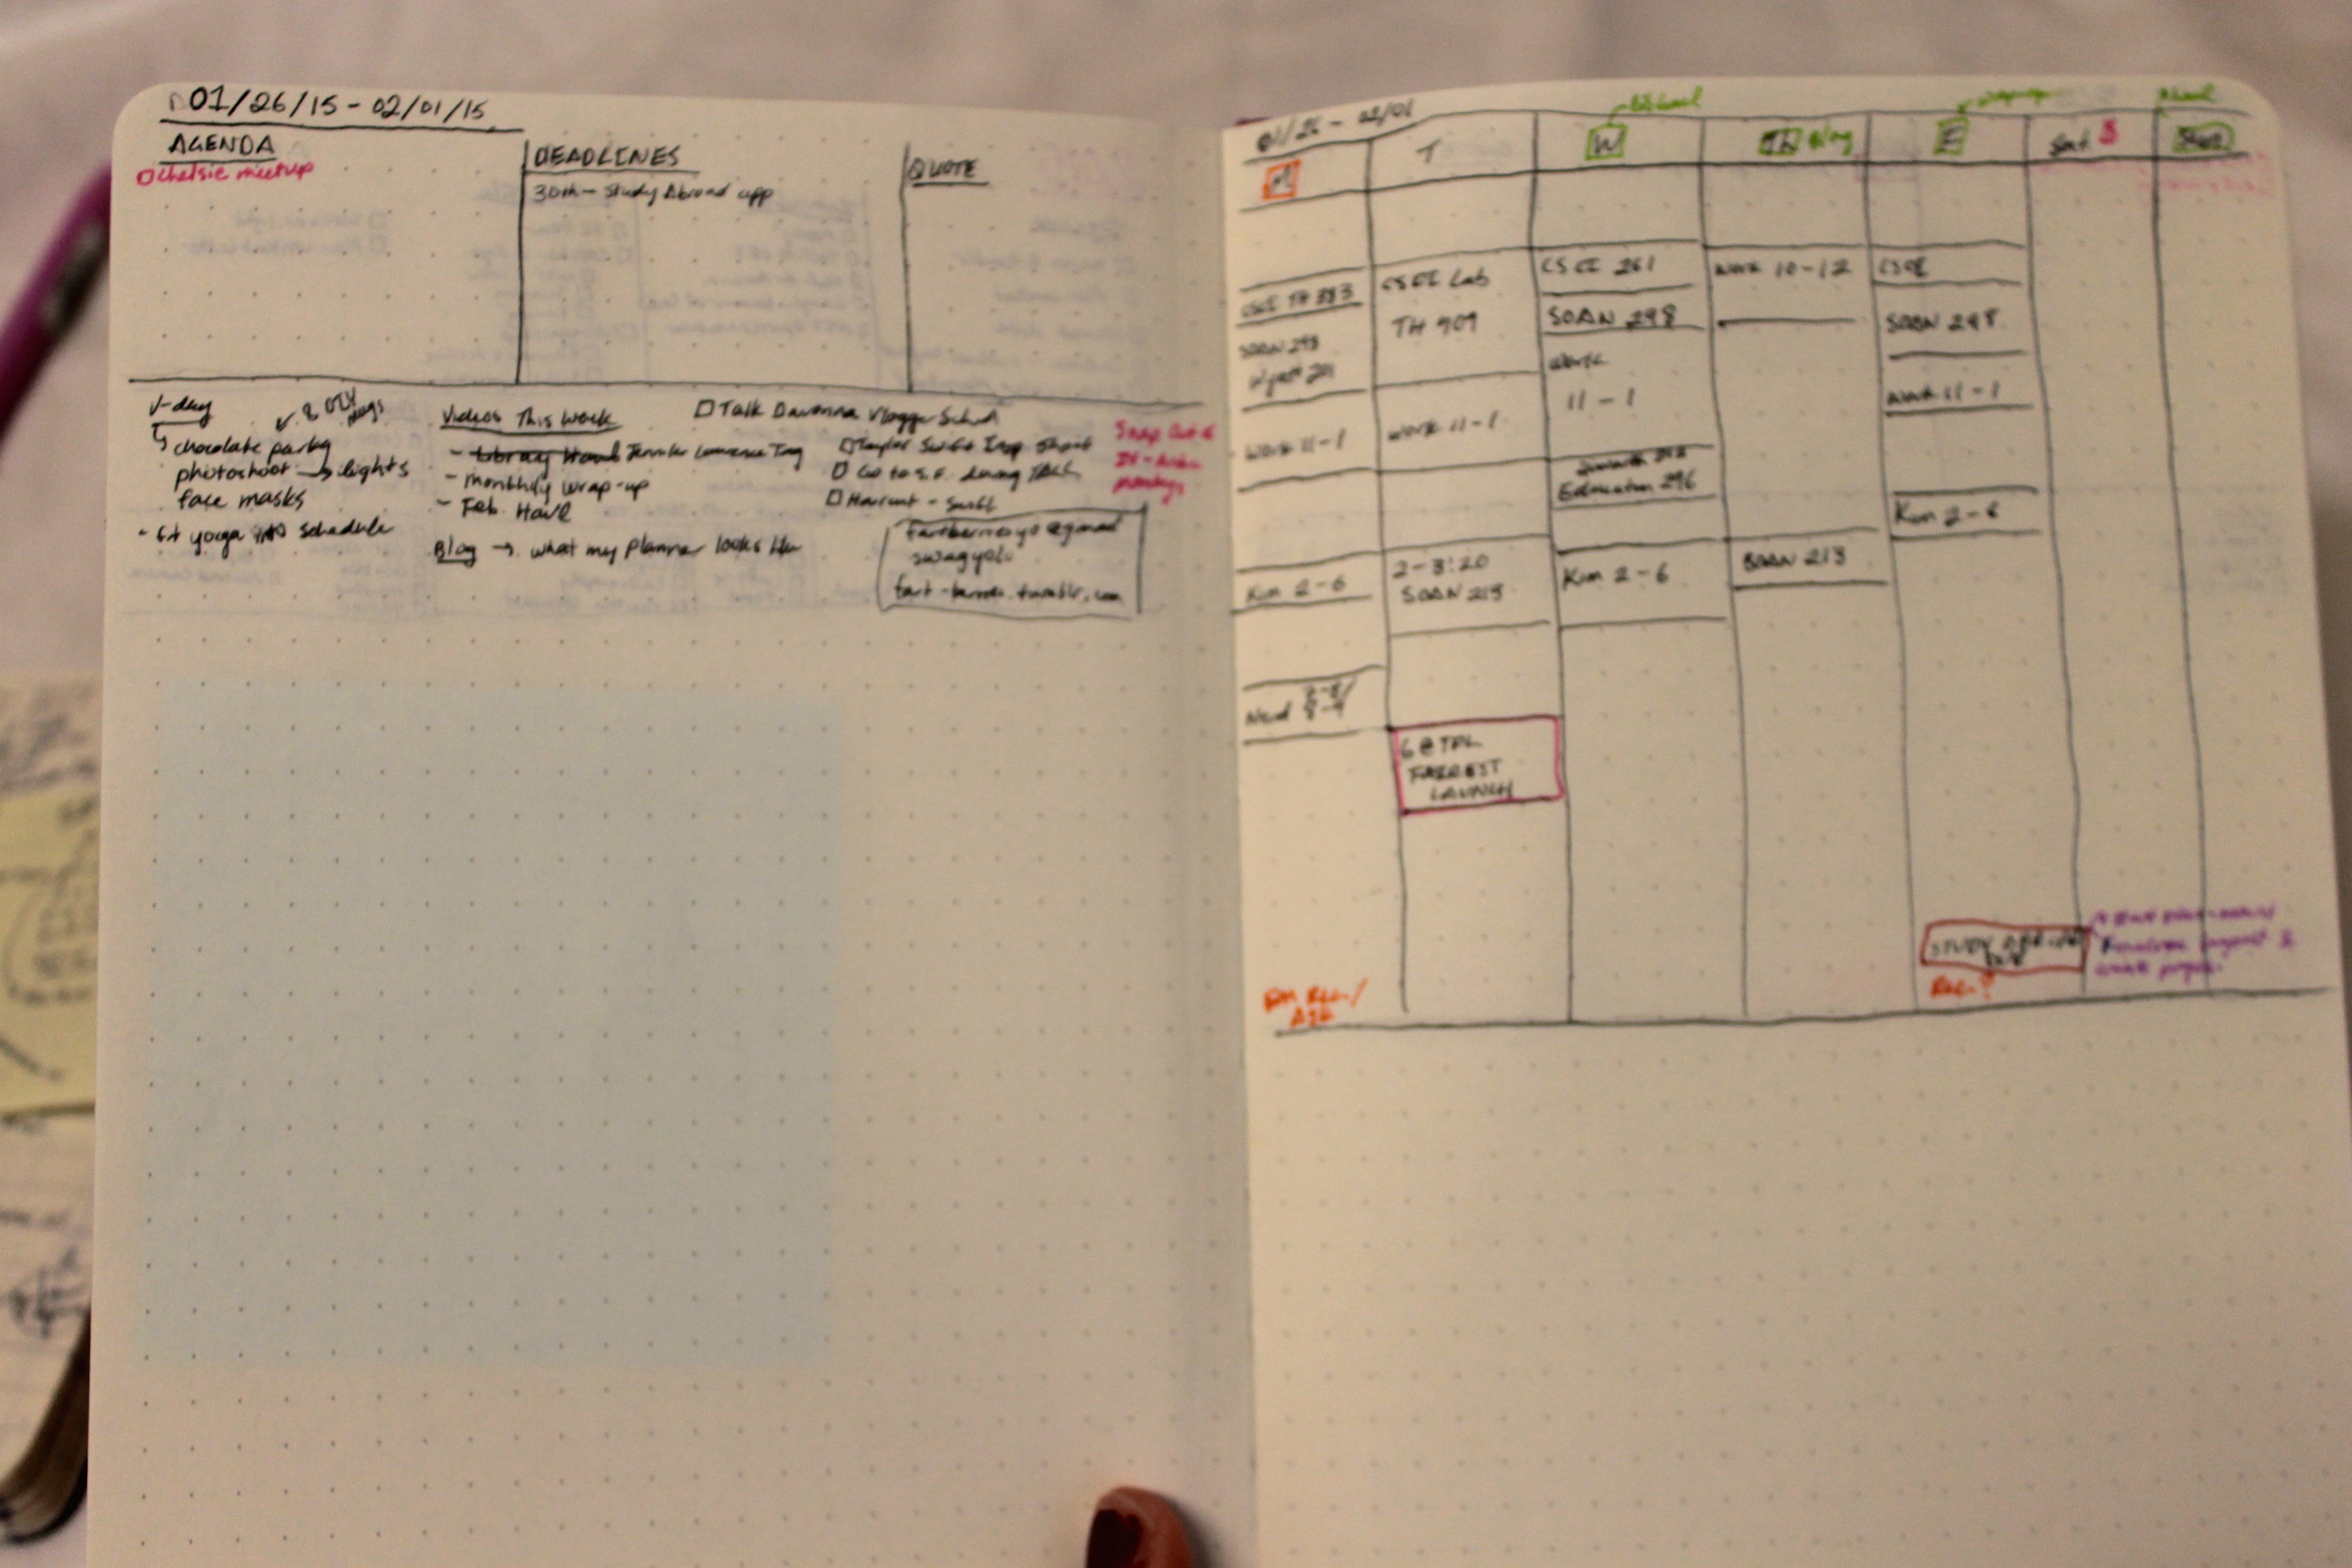 01/26/15 - 02/01/15
AGENDA
Chelsie meetup
DEADLINES
30th - Study Abroad app
QUOTE
V-day
chocolate party
photoshoot → lights
face masks
- fit yoga into schedule
Videos This Week
- Library Haul Jennifer Lawrence Tag
- monthly wrap-up
- Feb. Haul
Blog → what my planner looks like
Talk Davonna Vlogger Sched
Taylor Swift Insp Shoot
Go to S.F. during
Haircut - Swift
swagyolo
01/26 - 02/01
M
T
W
Th Blog
F
Sat
CSCI TH 383
SOAN 298
Wyatt 201
Work 11-1
Kim 2-6
CSCI Lab
TH 409
Work 11-1
2-3:20
SOAN 213
6 @ TPL
FORREST
LAUNCH
CSCI 261
SOAN 298
Work
11-1
Education 296
Kim 2-6
Work 10-12
SOAN 213
CSCI
SOAN 298
Work 11-1
Kim 2-6
STUDY
Rec?